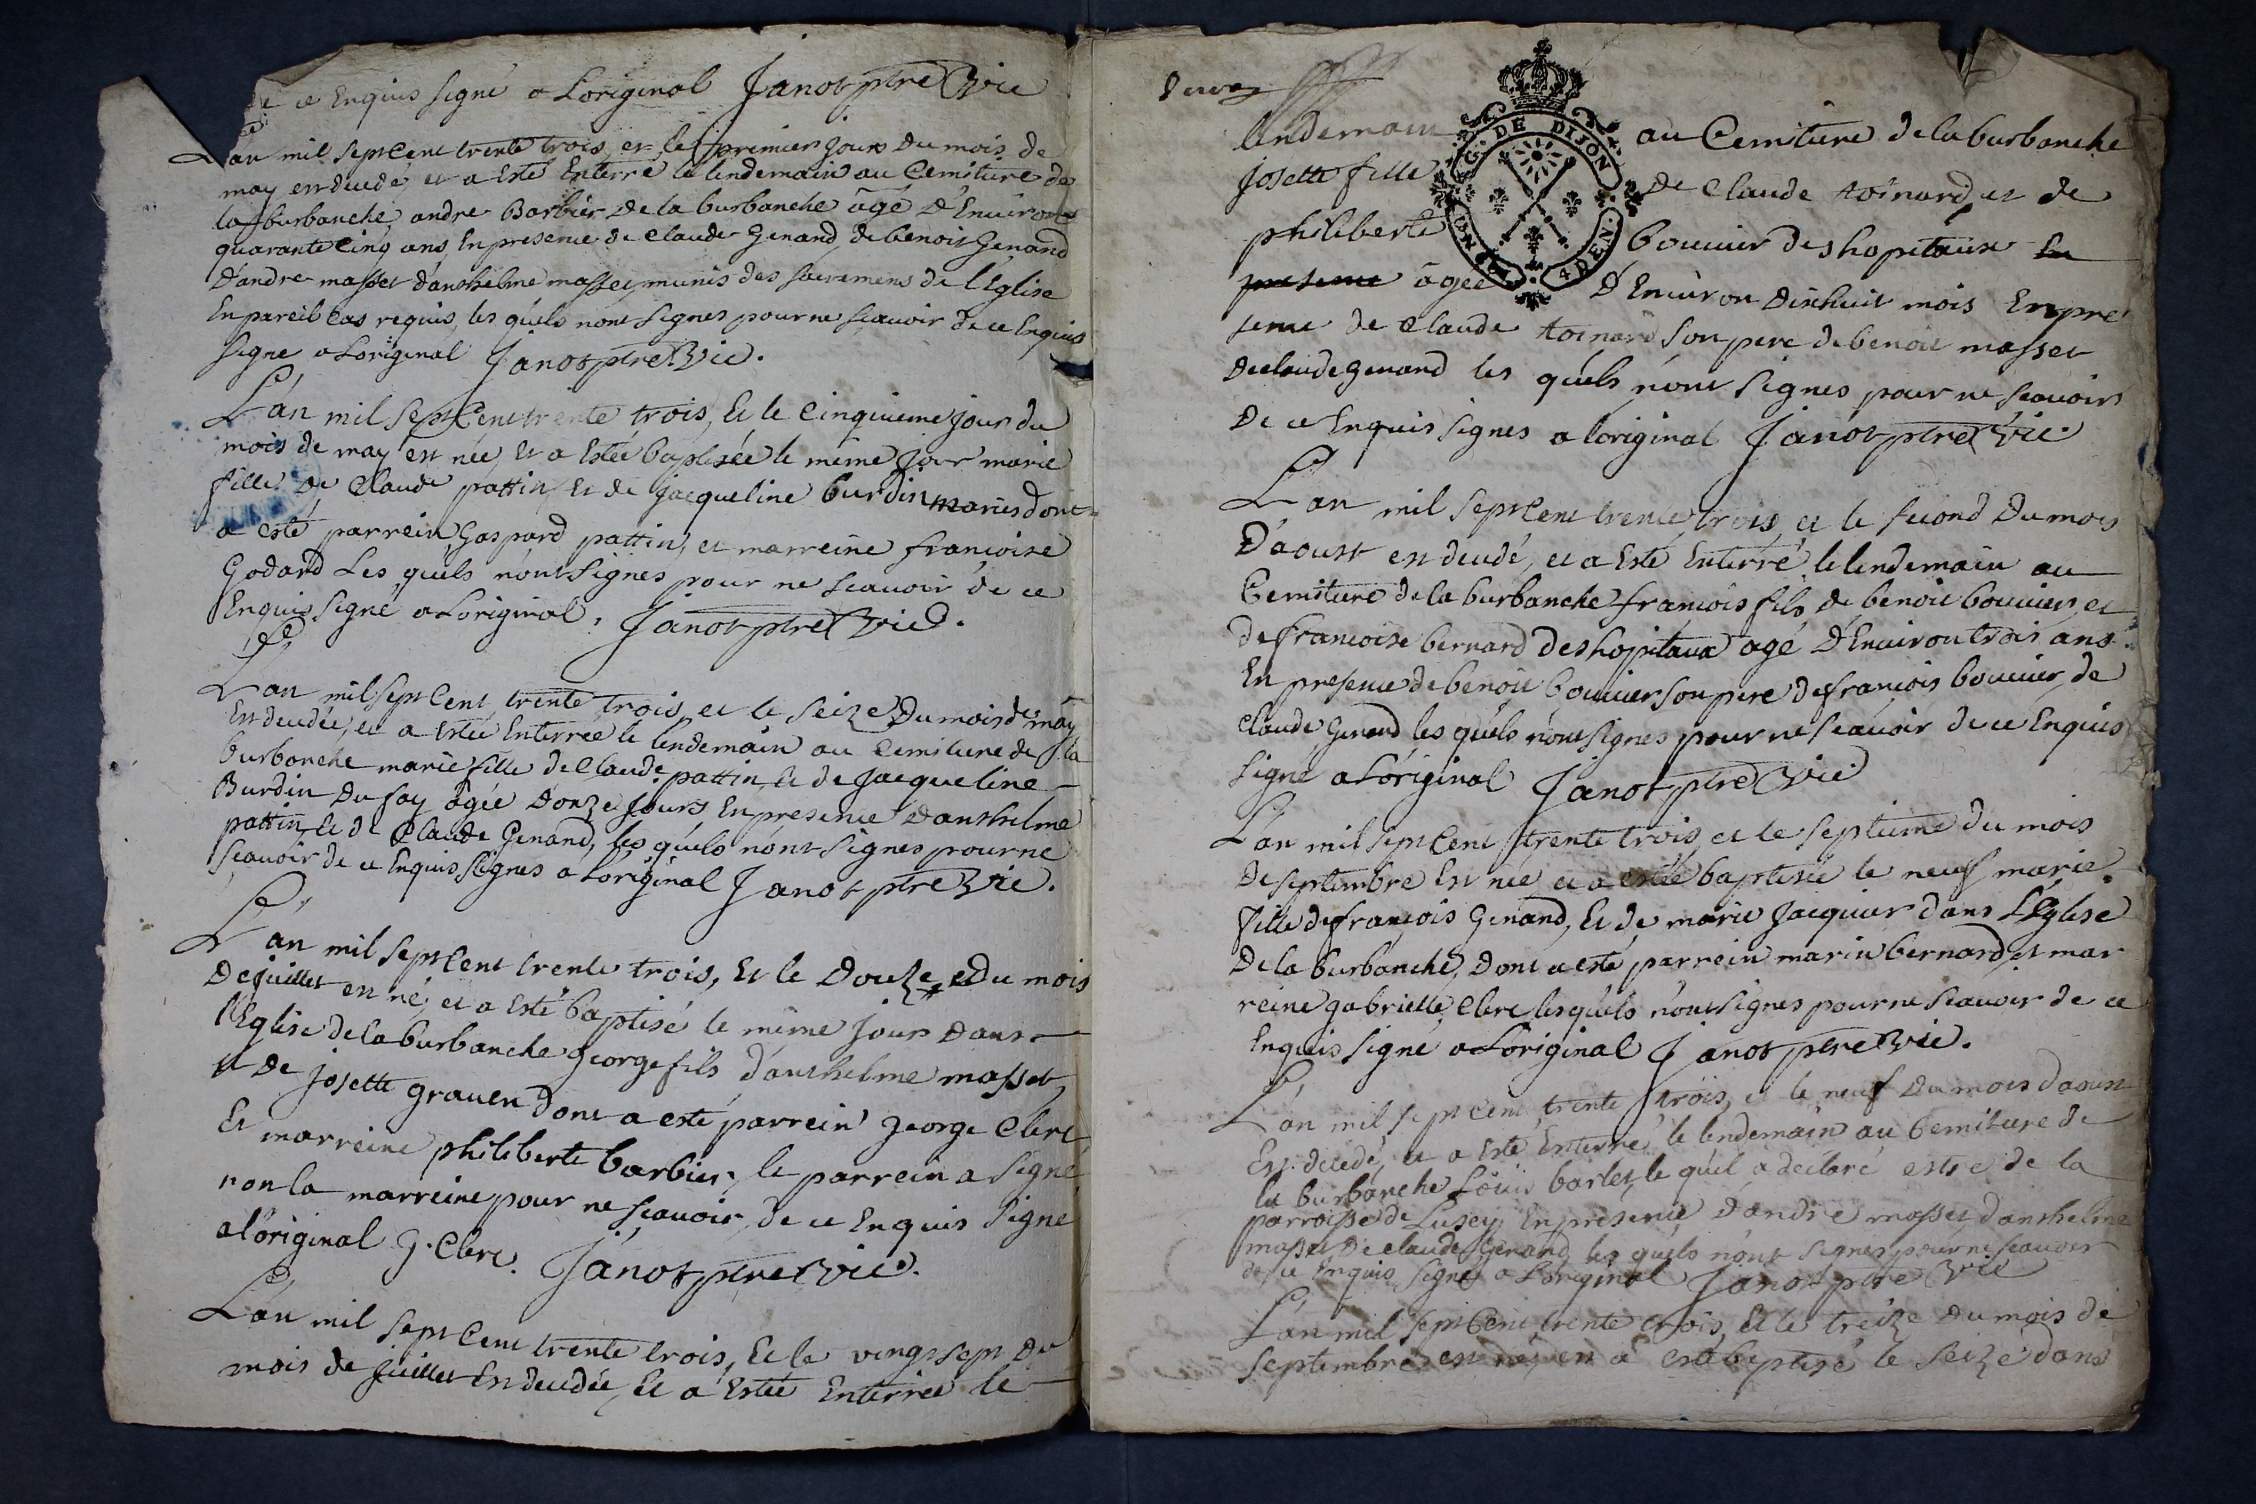 de ce Enquis signé a Loriginal Janot ptre Vic
L'an mil sept Cent trente trois, et le premier jour du mois de
may est decedé, et a Esté Enterré le lendemain au Cemitiere de
la burbanche andre Barbier de la burbanche âgé D'Environ
quarante Cinq ans, En presence de Claude Genand, de benoit Genand
D'andre masset d'anthelme masset, munis des sacremens de l'Eglise
En pareil Cas requis, les quels n'ont signes pour ne scavoir de ce Enquis
signe a L'original Janot ptre Vic.
L'an mil sept Cent trente trois, Et le Cinquieme jour du
mois de may est née, Et a Estée baptisée le même jour marie
fille de Claude pattin, Et de jacqueline burdin mariés dont
a esté parrein Gaspard pattin, et marreine françoise
Godard Les quels n'ont signes pour ne scavoir de ce
Enquis signé a L'original, Janot ptre Vic.
L'an mil sept Cent, trente trois, et le seize Du mois de may
Est decedée, et a Estée Enterrée le lendemain au Cemitiere de la
burbanche marie fille de Claude pattin, Et de Jacqueline
Burdin Du fay âgée Donze Jours, En presence D'anthelme
pattin, et de Claude Genand, les quels n'ont signes pour ne
scavoir de ce Enquis signes a L'original Janot ptre Vic.
L'an mil sept Cent trente trois, Et le Douze Du mois
De juillet est né, et a Esté baptisé le même jour Dans
l'Eglise de la burbanche george fils d'anthelme masset,
et De josette graven dont a esté parrein george Clerc
Et marreine philiberte barbier, le parrein a signé
non la marreine pour ne scavoir, de ce Enquis signé
a l'original G. Clerc. Janot ptre Vic.
L'an mil sept Cent trente trois, Et le vingt sept Du
mois de juillet Est decedée, Et a Estée Enterrée le
lendemain au Cemitiere de la burbanche
josette fille de Claude toinard, et de
philiberte bouvier des hopitaux En
presence âgée D'Environ Dixhuit mois En pre
sence de Claude toinard son pere de benoit masset
De claude genand les quels n'ont signes pour ne scavoir
De ce Enquis signes a loriginal Janot ptre Vic.
G. DE DIJON
4 DEN.
L'an mil sept Cent trente trois, et le second Du mois
D'aoust est decedé, et a Esté Enterré le lendemain au
Cemitiere de la burbanche francois fils de benoit bouvier, et
de francoise bernard des hopitaux agé D'Environ trois ans
En presence de benoit bouvier son pere de francois bouvier, de
Claude Genand les quels n'ont signes pour ne scavoir de ce Enquis
signé a L'original Janot ptre Vic.
L'an mil sept Cent trente trois, et le septieme du mois
De septembre Est née et a estée baptisée le neuf marie
fille de françois Genand, Et de marie Jacquier dans L'Eglise
De la burbanche, Dont a esté parrein marin bernard, et mar
reine gabrielle Clerc lesquels n'ont signes pour ne scavoir de ce
Enquis signé a L'original Janot ptre Vic.
L'an mil sept cent trente trois, et le neuf Du mois d'aoust
Est decedé, et a Esté Enterré le lendemain au Cemitiere de
la burbanche Loüis barlet, le quel a declaré estre de la
parroisse de Lusey, En presence D'andre masset, d'anthelme
masset De claude Genand, les quels n'ont signes pour ne scavoir
de ce Enquis signés a L'original Janot ptre Vic
L'an mil sept Cent trente trois, Et le treize Du mois de
septembre est né, et a esté baptisé le seize dans